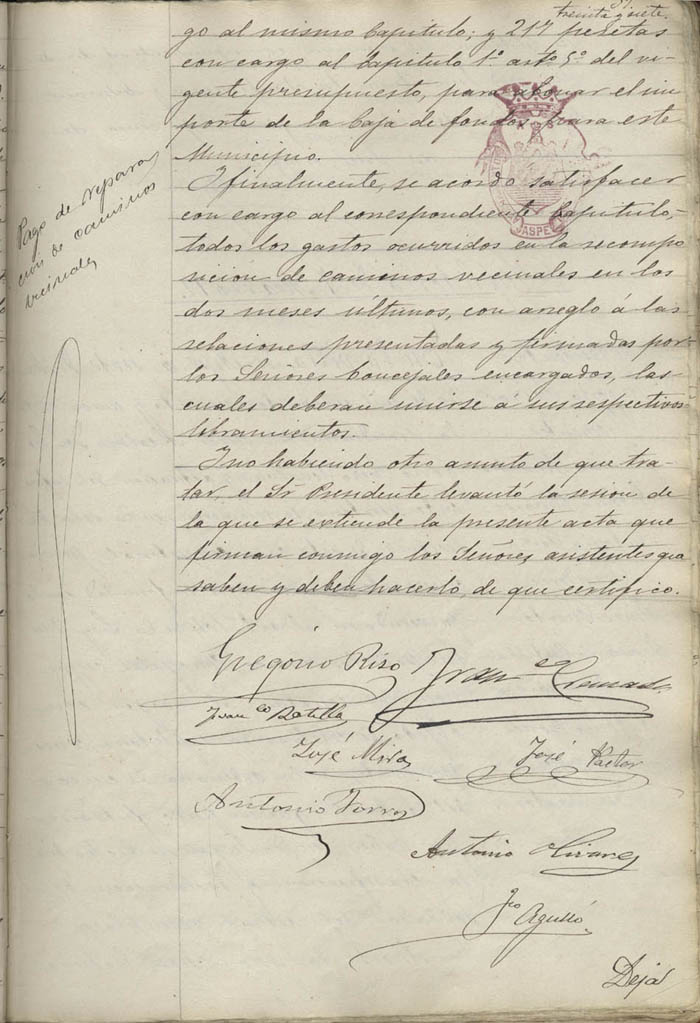 37.
Treinta y siete.
go al mismo Capitulo; y 217 pesetas
con cargo al Capitulo 1º artº 5º del vi-
gente presupuesto, para abonar el im
porte de la Caja de fondos para este
Municipio.
Pago de repara
cion de caminos
vecinales
Y finalmente, se acordo satisfacer
con cargo al correspondiente Capitulo,
todos los gastos ocurridos en la recompo
sicion de caminos vecinales en los
dos meses últimos, con arreglo á las
relaciones presentadas y firmadas por
los Señores Concejales encargados, las
cuales deberan unirse á sus respectivos
libramientos.
Y no habiendo otro asunto de que tra-
tar, el Sr Presidente levantó la sesion de
la que se extiende la presente acta que
firman conmigo los Señores asistentes que
saben y deben hacerlo, de que certifico.
Gregorio Rizo Franco Cremades
Juan Co Botella
José Mira José Pastor
Antonio Torres
Antonio Olivares
Jco Agulló
Deja
JASPE